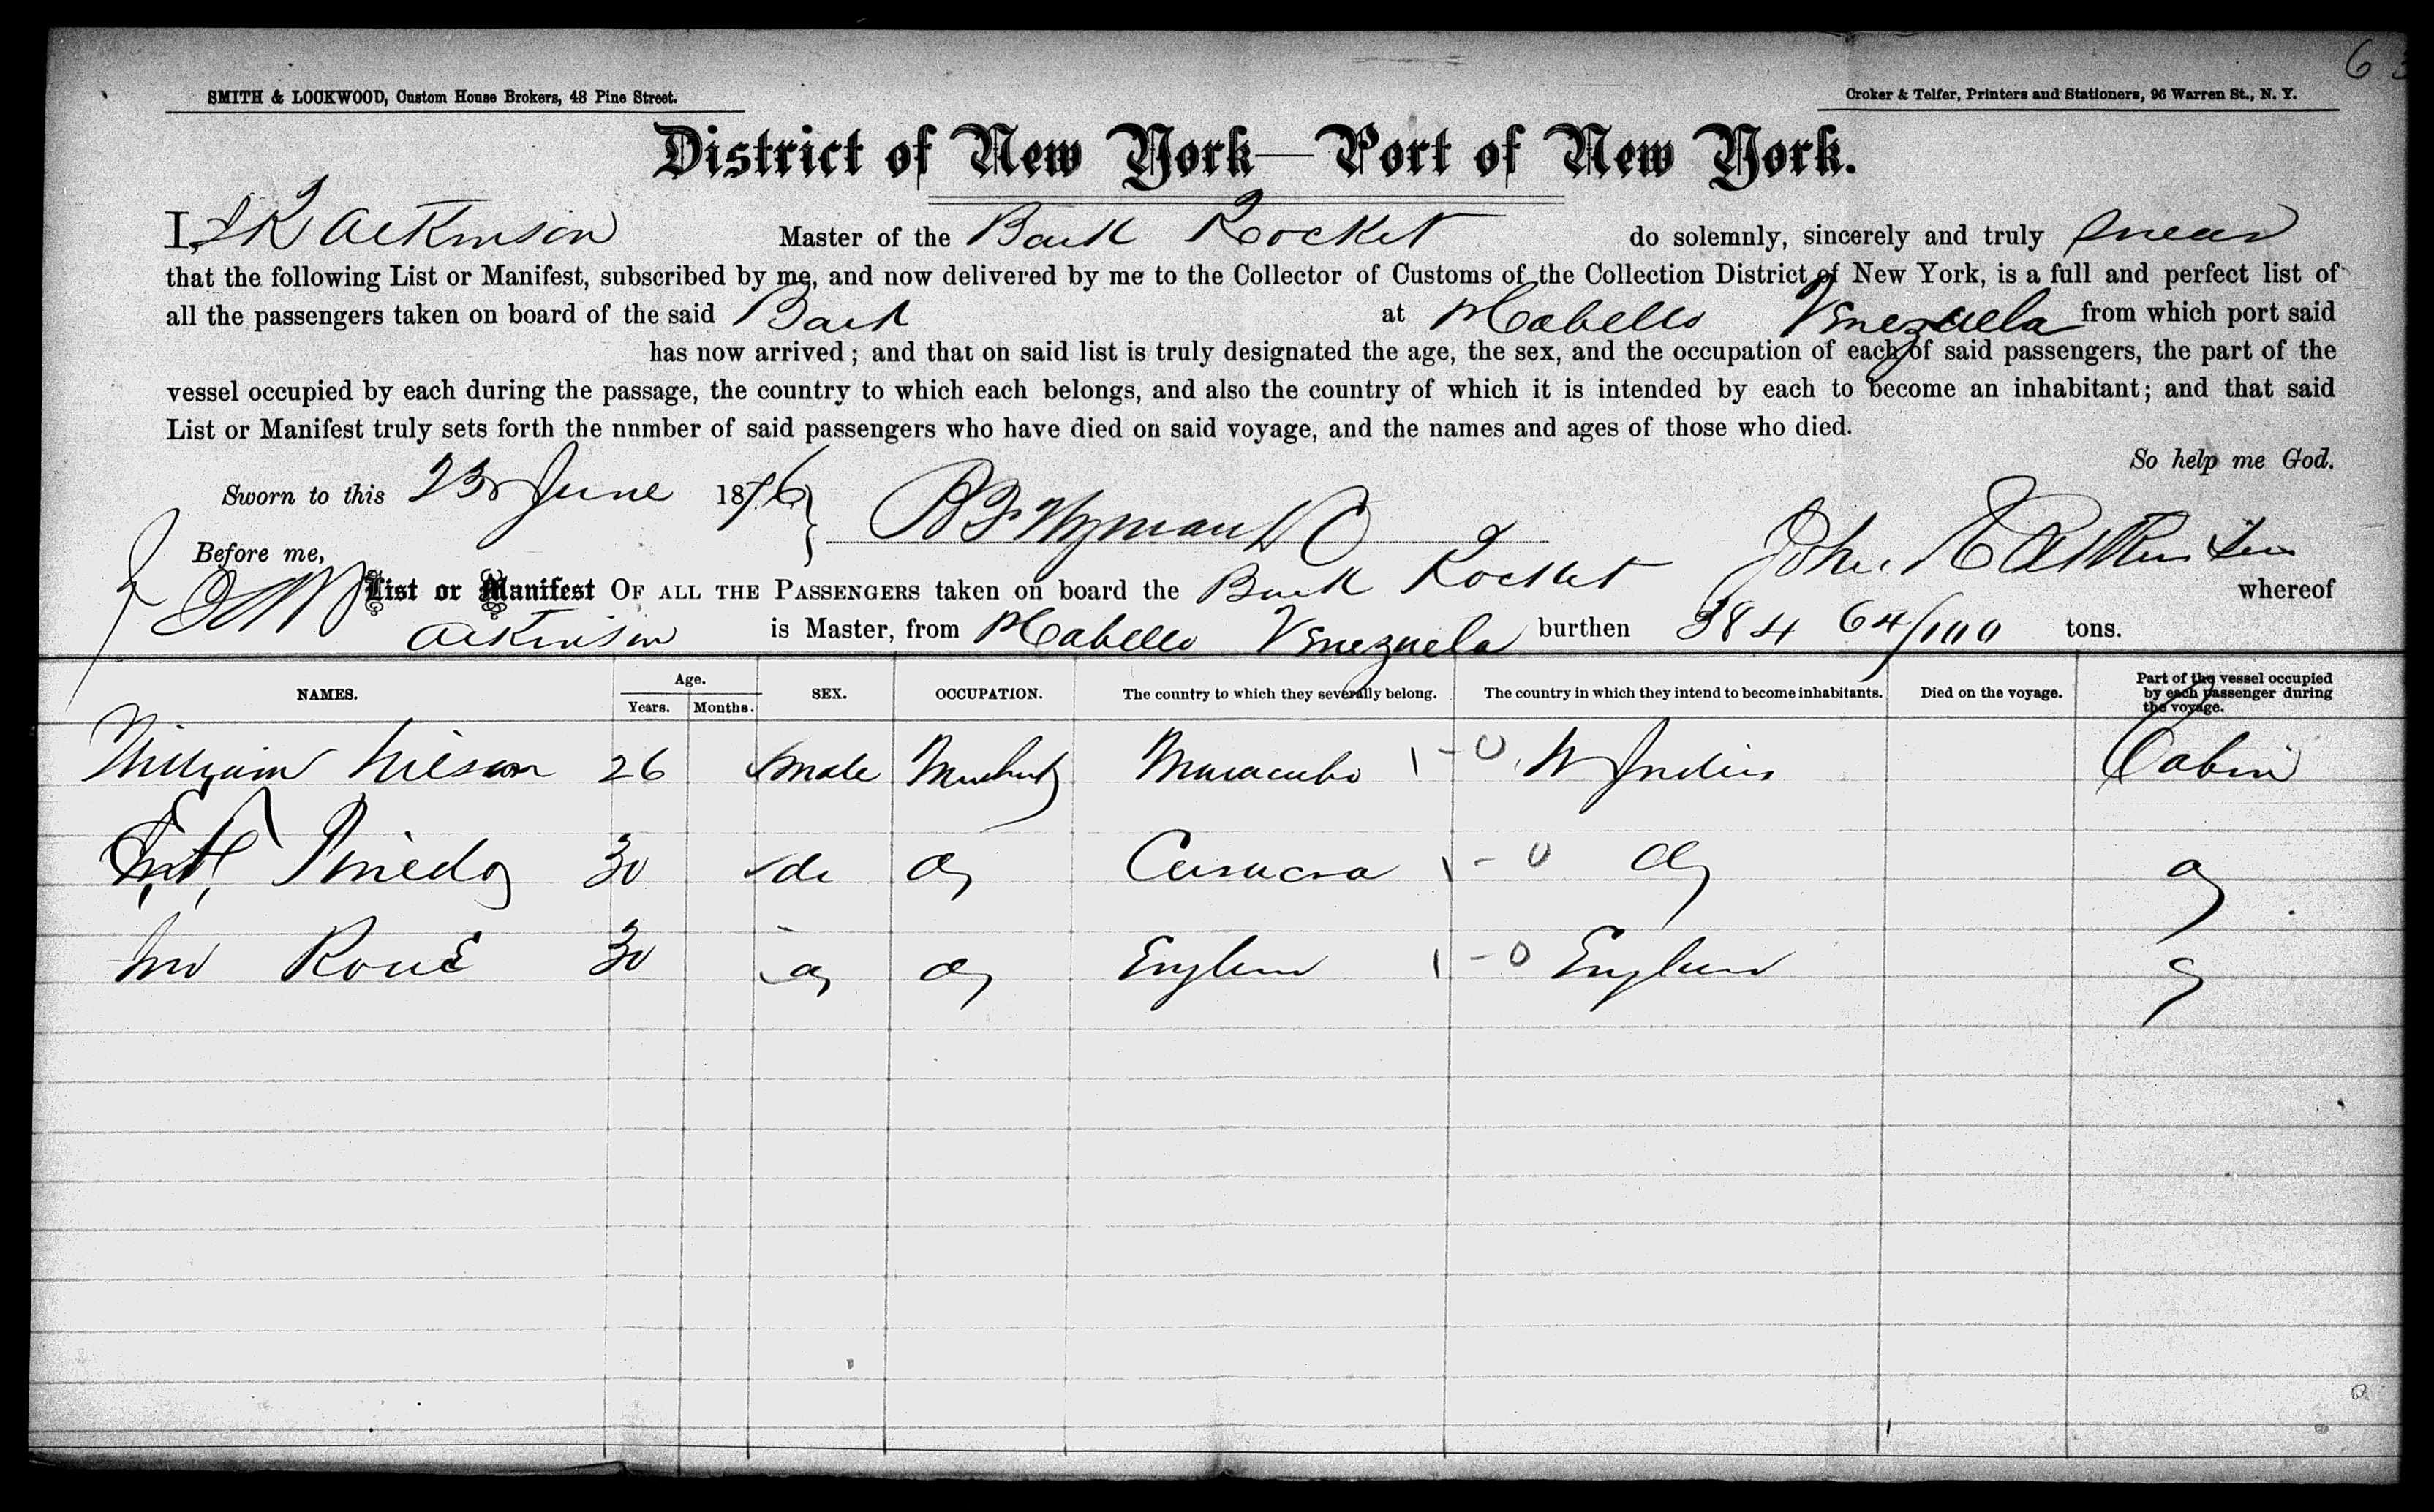 63
SMITH & LOCKWOOD, Custom House Brokers, 48 Pine Street.
Croker & Telfer, Printers and Stationers, 96 Warren St., N. Y.
District of New York—Port of New York.
I, Atkinson Master of the Bark Rocket do solemnly, sincerely and truly swear
that the following List or Manifest, subscribed by me, and now delivered by me to the Collector of Customs of the Collection District of New York, is a full and perfect list of
all the passengers taken on board of the said Bark at P Cabello Venezuela from which port said
has now arrived; and that on said list is truly designated the age, the sex, and the occupation of each of said passengers, the part of the
vessel occupied by each during the passage, the country to which each belongs, and also the country of which it is intended by each to become an inhabitant; and that said
List or Manifest truly sets forth the number of said passengers who have died on said voyage, and the names and ages of those who died.
So help me God.
Sworn to this 23 June 1876
Before me, John Atkinson
List or Manifest OF ALL THE PASSENGERS taken on board the Bark Rocket whereof
Atkinson is Master, from P Cabello Venezuela burthen 384 64/100 tons.
NAMES. Age. Years. Months. SEX. OCCUPATION. The country to which they severally belong. The country in which they intend to become inhabitants. Died on the voyage. Part of the vessel occupied by each passenger during the voyage.
William 26 male Maracaibo 1-0 W Indies Cabin
Pinedo 30 do do Curacoa 1-0 do do
30 do do England 1-0 England do